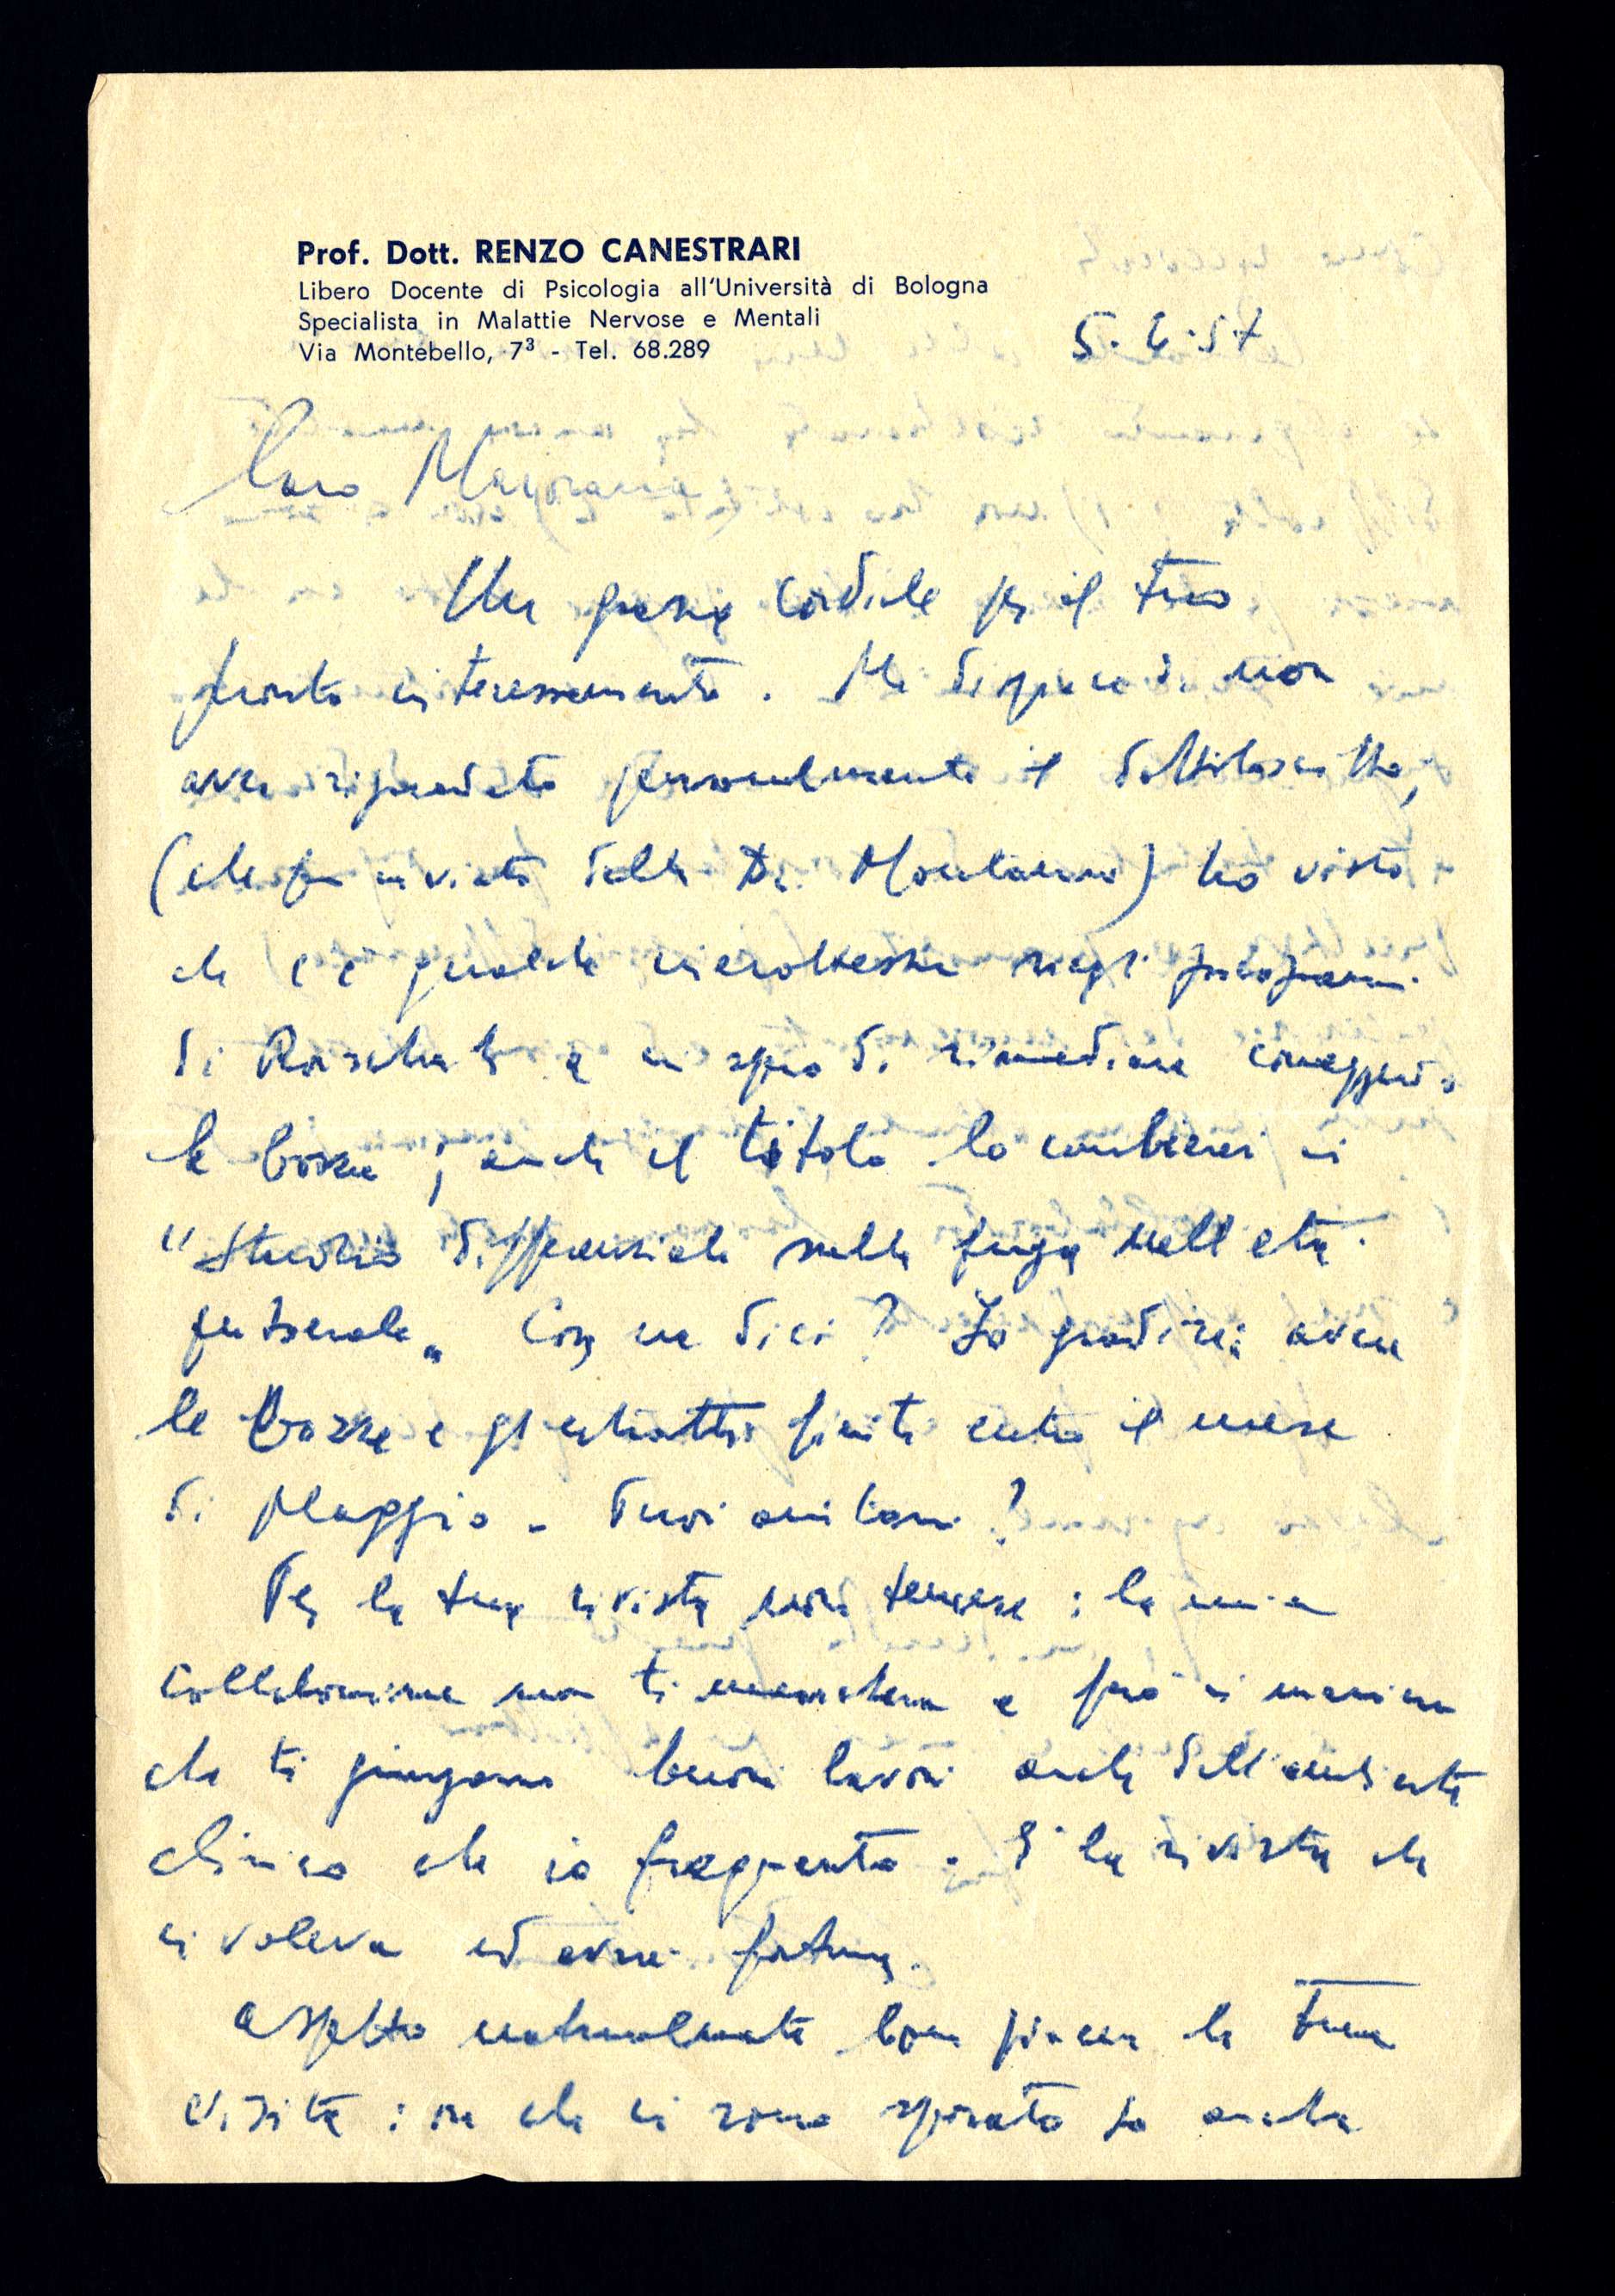 Prof. Dott. RENZO CANESTRARI
Libero Docente di Psicologia all'Università di Bologna
Specialista in Malattie Nervose e Mentali
Via Montebello, 7³ - Tel. 68.289
5. 4. 57
Caro Mayorana
Un grazie cordiale per il tuo
pronto interessamento. Mi dispiace di non
aver riguardato personalmente il dattiloscritto,
(che fu inviato dalla Dr. Montanini) ho visto
che c'è qualche inesattezza negli psicogrammi
di Rorschach e io spero di rimediare correggendo
le bozze; anche il titolo lo cambierei in
"Studio differenziale sulla fuga nell'età
puberale" Cosa ne dici? Io gradirei avere
le bozze e gli estratti finiti entro il mese
di Maggio. Puoi aiutarmi?
Per la tua rivista non temere: la mia
collaborazione non ti mancherà e farò in maniera
che ti giungano buoni lavori anche dall'ambiente
clinico che io frequento. È la rivista che
ci voleva ed avrai fortuna.
Aspetto naturalmente con piacere la tua
visita: ora che mi sono sposato ho anche